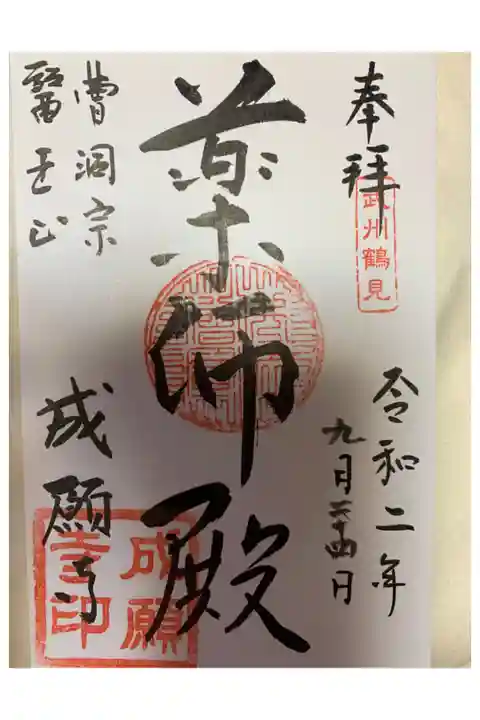 奉拝
武州鶴見
令和二年
九月二十四日
薬師殿
曹洞宗
醫王山
成願寺
成願寺印